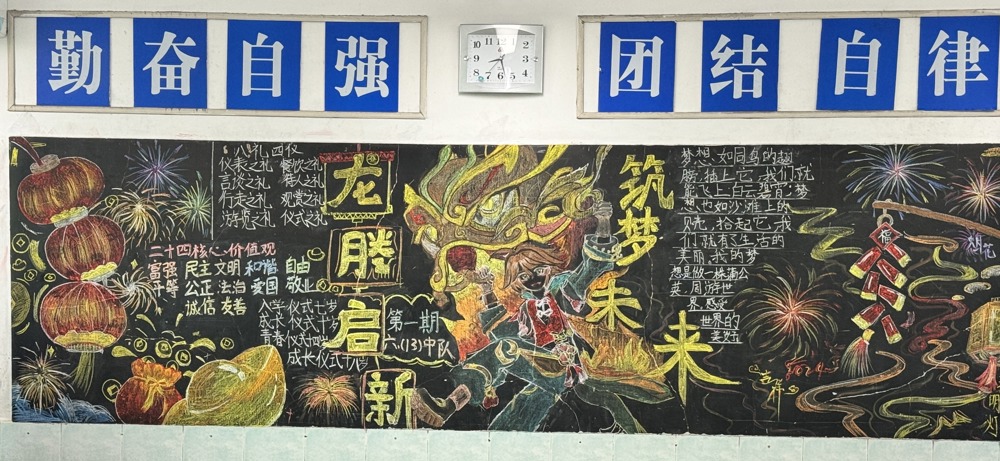 勤奋自强
团结自律
10 11 12 1 2
9 3
8 7 6 5 4
八礼四仪
仪表之礼 餐饮之礼
言谈之礼 待人之礼
行走之礼 观赏之礼
游览之礼 仪式之礼
二十四核心价值观
富强 民主 文明 和谐 自由
平等 公正 法治 爱国 敬业
诚信 友善
入学仪式七岁
成长仪式十岁
青春仪式十四岁
成长仪式十八岁
龙
腾
启
新
第一期
六(13)中队
筑梦未来
梦想,如同鸟的翅
膀,插上它,我们就
能飞上白云碧霄;梦
想,也如沙滩上的
贝壳,拾起它,我
们就有了生活的
美丽,我的梦
想是做一株蒲公
英,周游世
界,感受
世界的
美好
福
2024
烟花
明灯